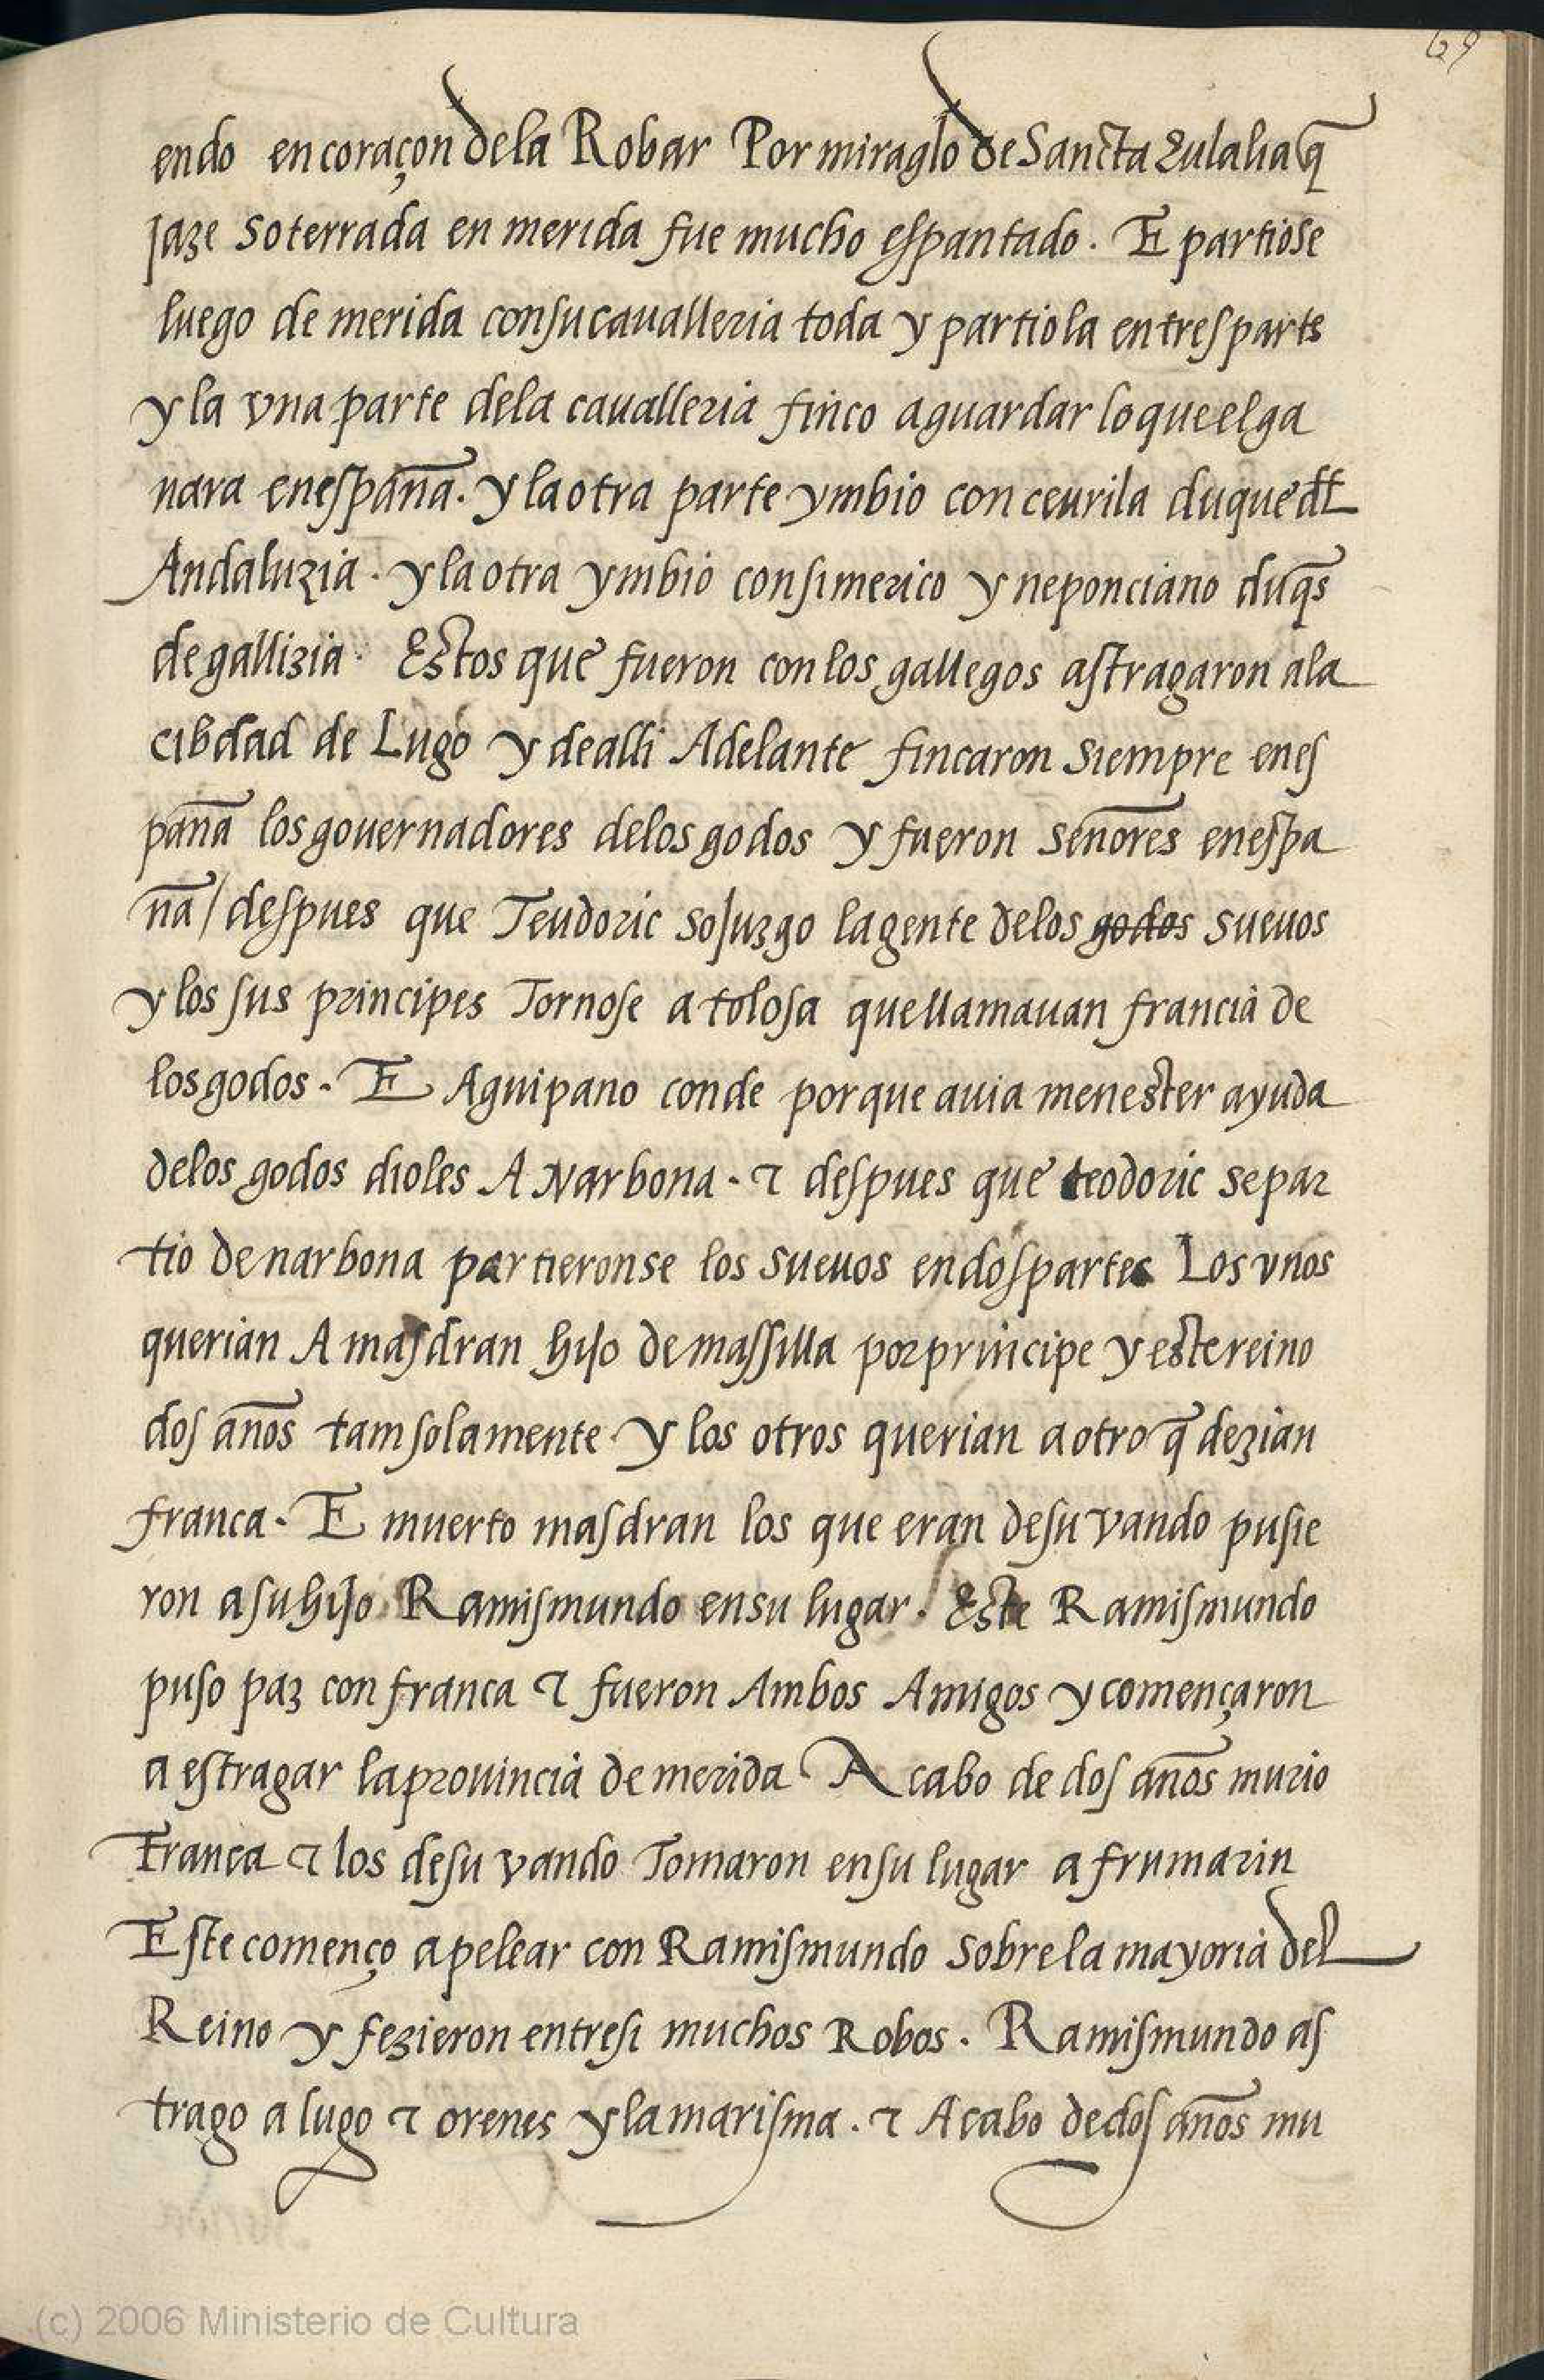 69
endo en coraçon de la Robar Por miraglo de Sancta Eulalia q̃
jaze soterrada en merida fue mucho espantado. E partiose
luego de merida con su caualleria toda y partiola en tres partes
y la vna parte de la caualleria finco a guardar lo que el ga
nara en españa. y la otra parte ymbio con ceurila duque dł
Andaluzia. y la otra ymbio con simerico y neponciano duq̃s
de gallizia. Estos que fueron con los gallegos astragaron a la
cibdad de Lugo y de alli Adelante fincaron siempre en es
paña los gouernadores de los godos y fueron señores en espa
ña / despues que Teudoric sojuzgo la gente de los godos sueuos
y los sus principes Tornose a tolosa que llamauan francia de
los godos. E Aguipano conde porque auia menester ayuda
de los godos dioles A Narbona. ⁊ despues que teodoric se par
tio de narbona partieronse los sueuos en dos partes Los vnos
querian A masdran hijo de massilla por principe y este reino
dos años tam solamente y los otros querian a otro q̃ dezian
franca. E muerto masdran los que eran de su vando pusie
ron a su hijo Ramismundo en su lugar. Este Ramismundo
puso paz con franca ⁊ fueron Ambos Amigos y començaron
a estragar la prouincia de merida A cabo de dos años murio
Franca ⁊ los de su vando Tomaron en su lugar a frumarin
Este començo a pelear con Ramismundo sobre la mayoria del
Reino y fezieron entre si muchos Robos. Ramismundo as
trago a lugo ⁊ orenes y la marisma. ⁊ A cabo de dos años mu
(c) 2006 Ministerio de Cultura